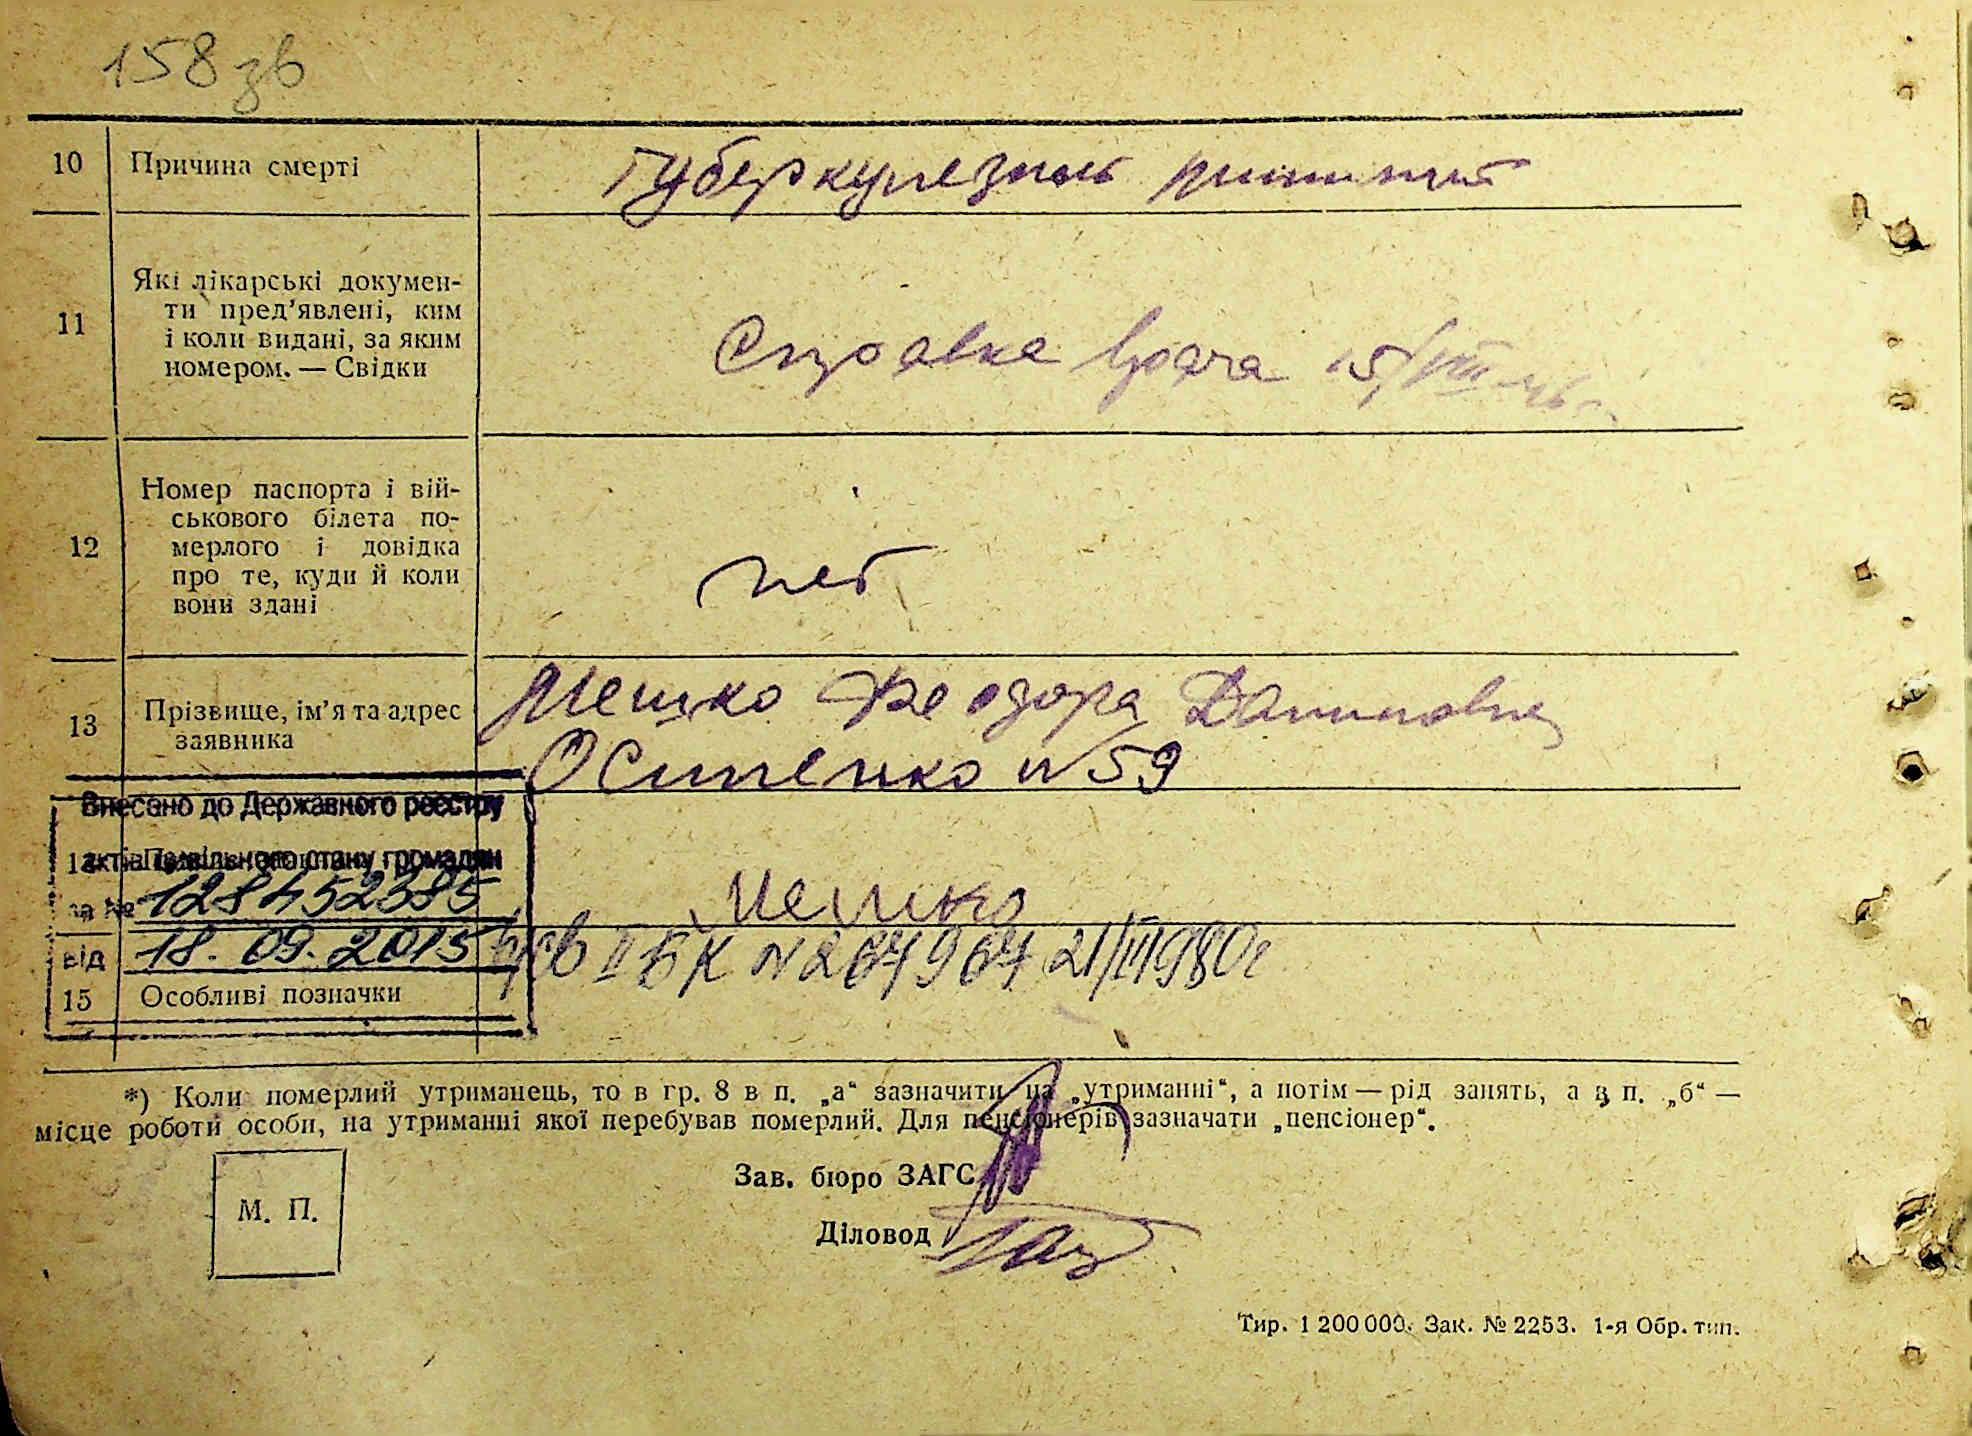 158 зв
10 Причина смерті Туберкулезный менингит
11 Які лікарські докумен-
ти пред’явлені, ким
і коли видані, за яким
номером. — Свідки
Справка врача 15/VIII
12 Номер паспорта і вій-
ськового білета по-
мерлого і довідка
про те, куди й коли
вони здані
нет
13 Прізвище, ім’я та адрес
заявника
Мешко Феодора Даниловна
Осипенко N 59
Внесено до Державного реєстру
актів цивільного стану громадян
за № 128452385
від 18.09.2015
Мешко
II БК N 267967 21/III 1980г
15 Особливі позначки
*) Коли померлий утриманець, то в гр. 8 в п. „а“ зазначити на „утриманні“, а потім — рід занять, а в п. „б“ —
місце роботи особи, на утриманні якої перебував померлий. Для пенсіонерів зазначати „пенсіонер“.
М. П.
Зав. бюро ЗАГС
Діловод
Тир. 1 200 000. Зак. № 2253. 1-я Обр. тип.